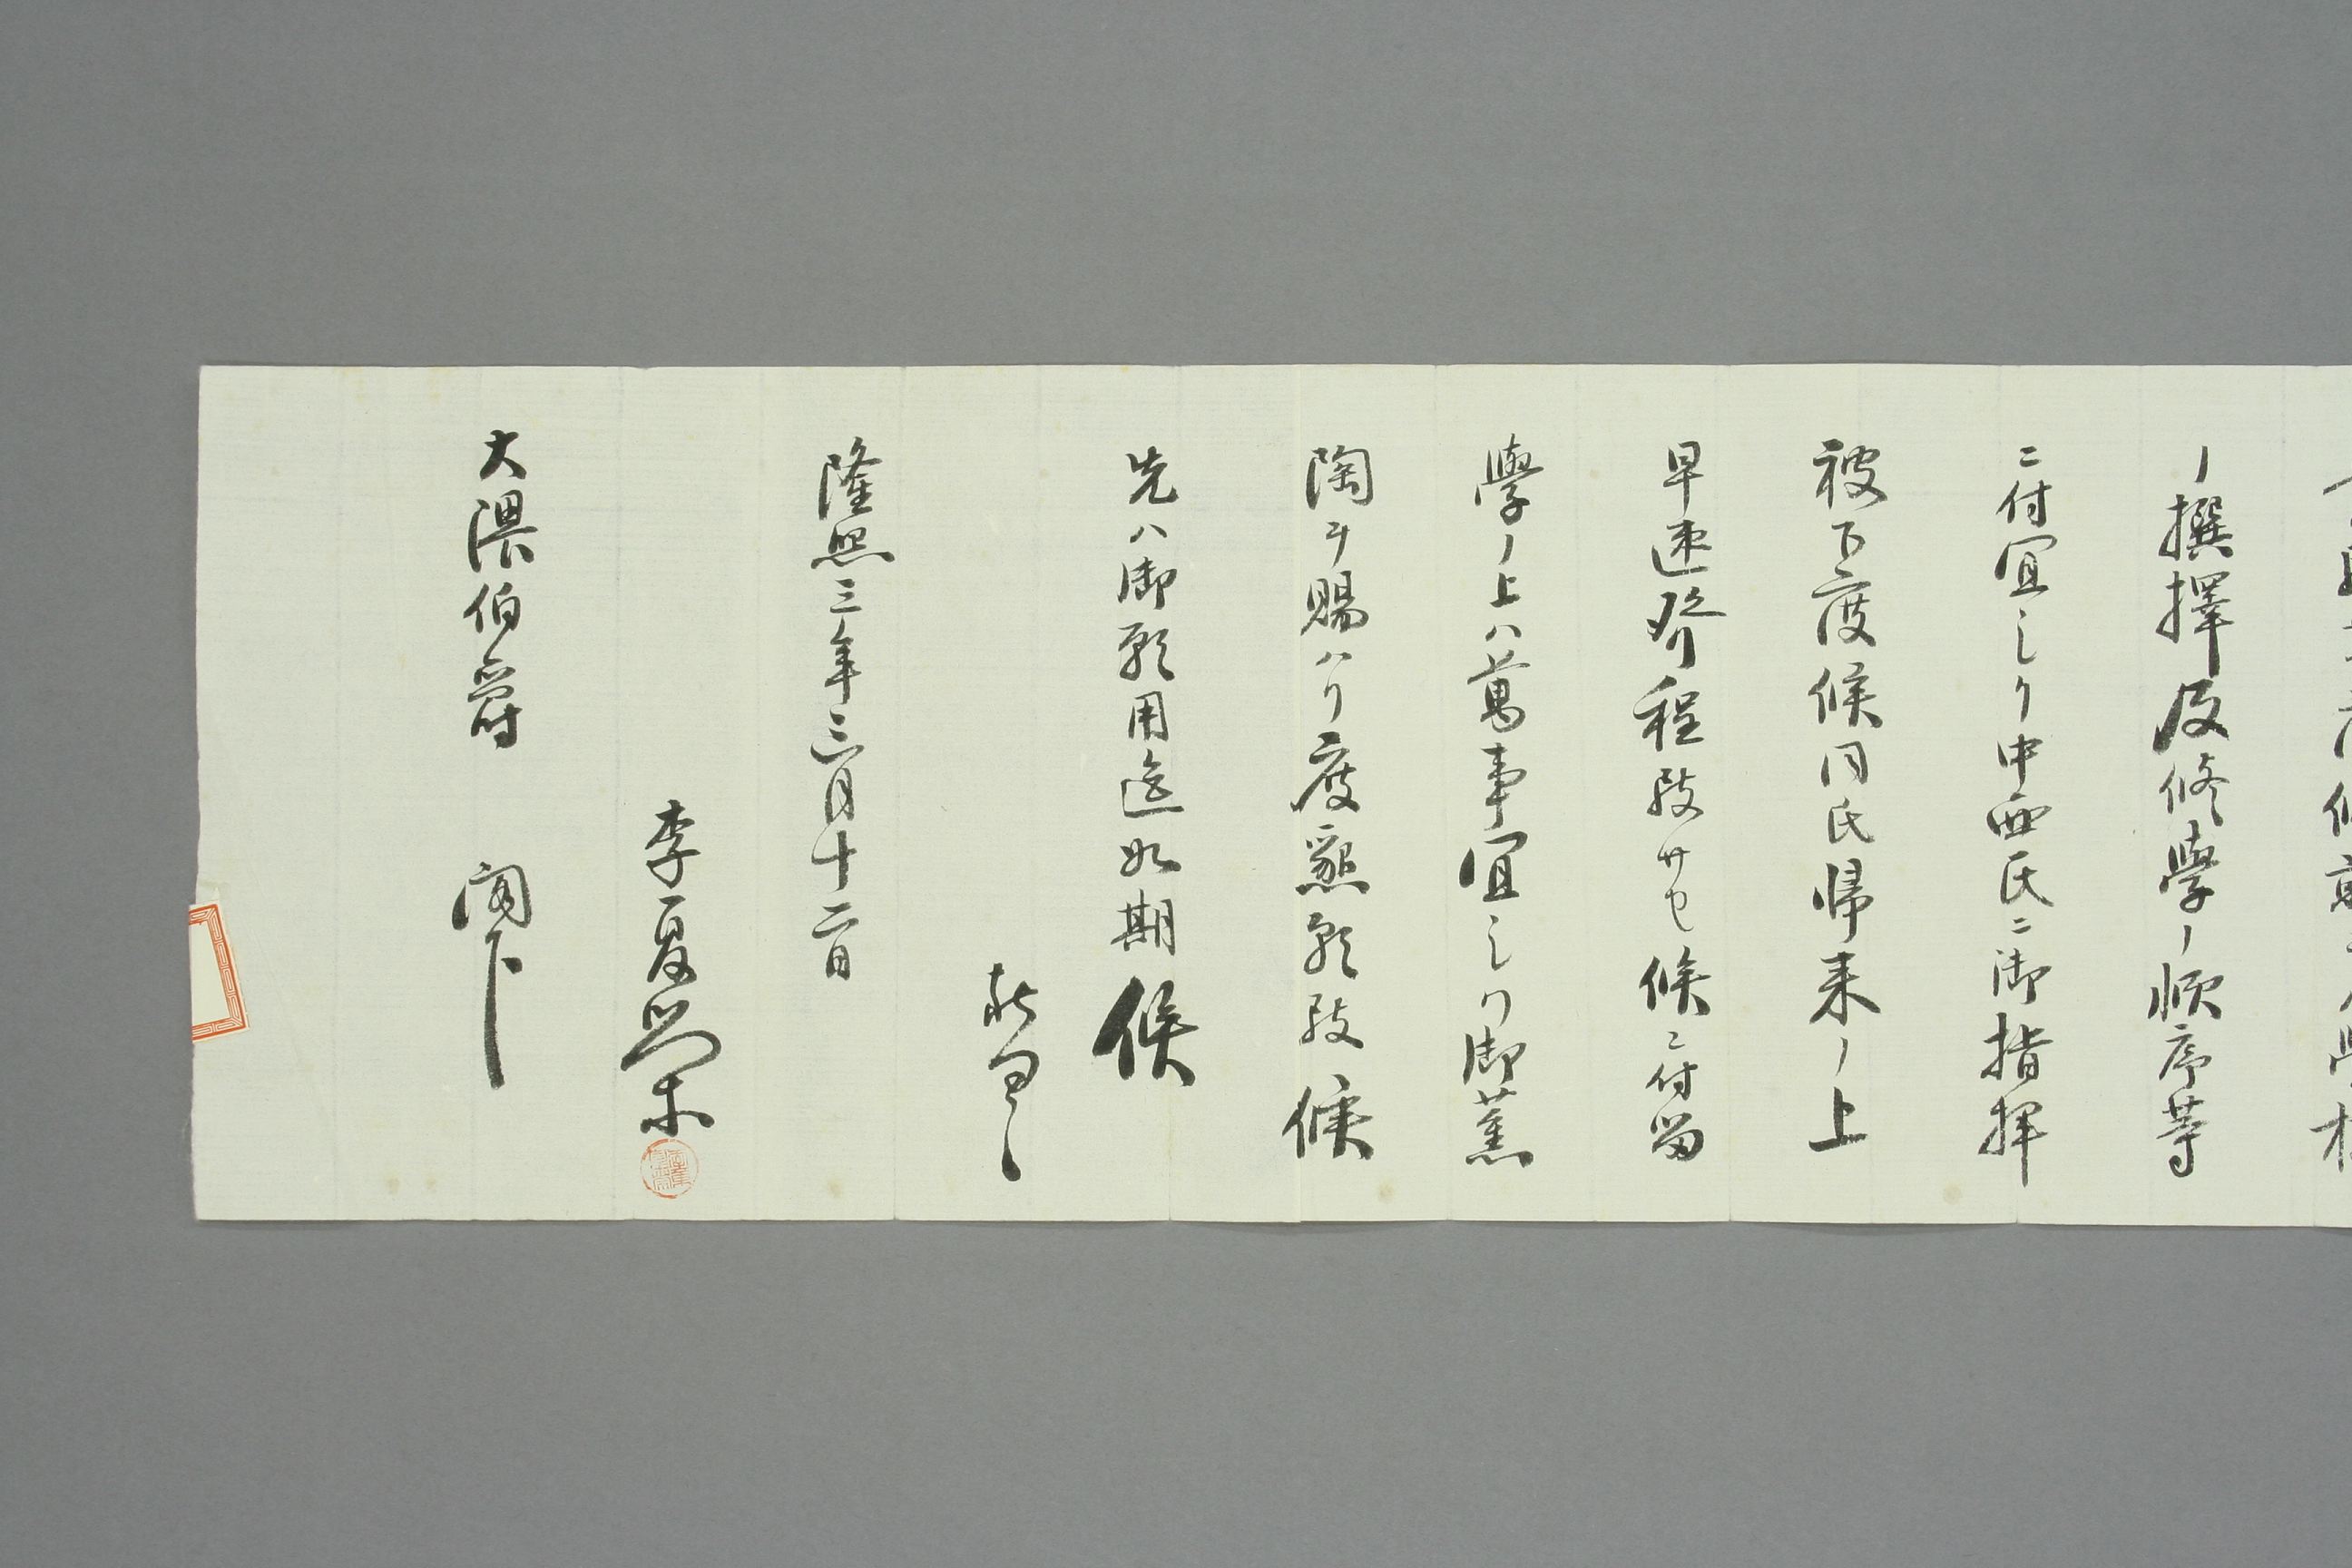 ノ撰擇及修學ノ順序等
ニ付宜シク中西氏ニ御指揮
被下度候同氏帰来ノ上
早速發程致サセ候ニ付留
學ノ上ハ萬事宜シク御薫
陶ヲ賜ハリ度懇願致候
先ハ御願用迄如期候
敬白
隆熙三年三月十二日
李夏榮
大隈伯爵 閣下